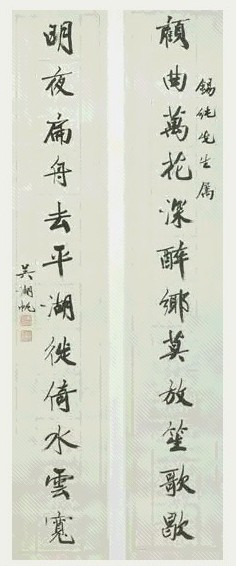 顧曲萬花深醉鄉莫放笙歌歇
錫純先生屬
明夜扁舟去平湖徙倚水雲寬
吳湖帆